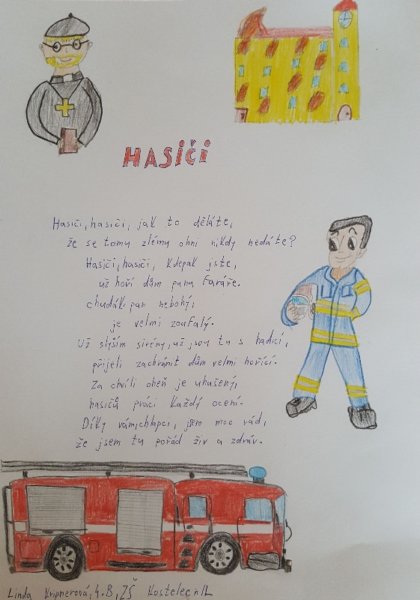 HASIČI
Hasiči, hasiči, jak to děláte,
že se tomu zlému ohni nikdy nedáte?
Hasiči, hasiči, kdepak jste,
už hoří dům pana faráře.
chudák pan nebohý,
je velmi zoufalý.
Už slyším sirény, už jsou tu s hadicí,
přijeli zachránit dům velmi hořící.
Za chvíli oheň je uhašený,
hasičů práci každý ocení.
Díky vám, chlapci, jsem moc rád,
že jsem tu pořád živ a zdráv.
Linda Kripnerová, 4.B, ZŠ Kostelec n/L